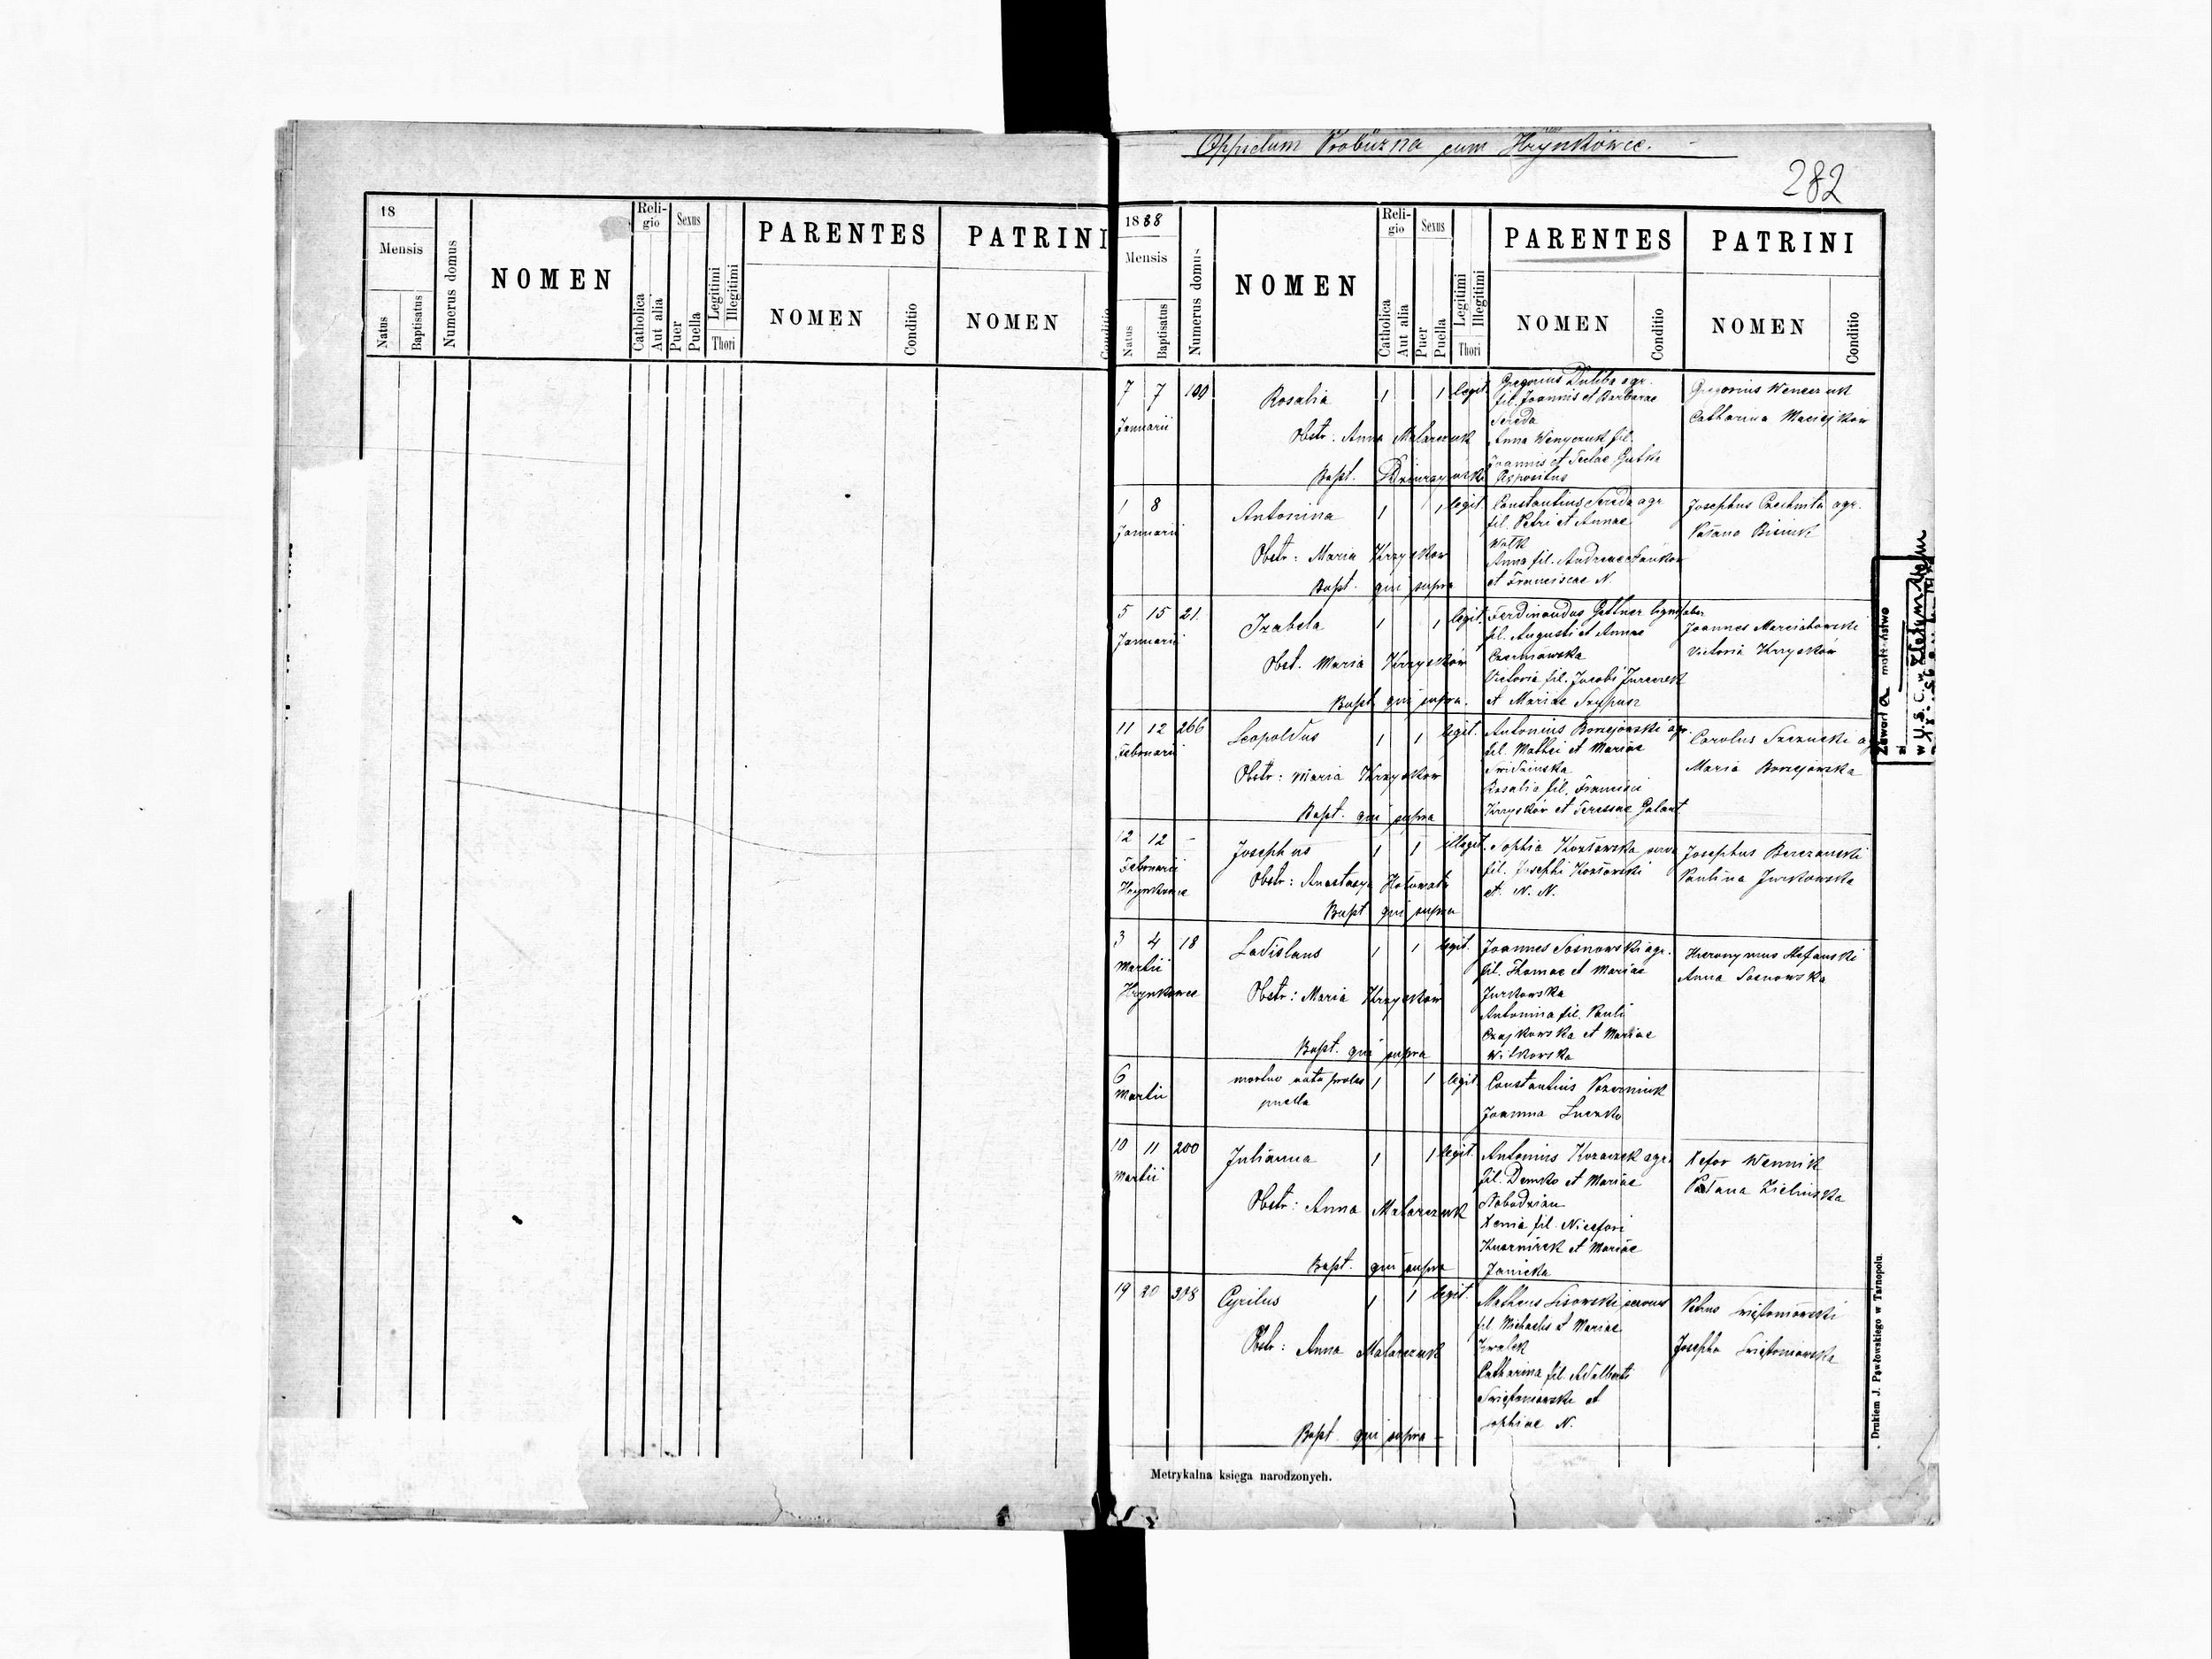 Oppidum Probużna cum Hrynkowce.
282
18
Mensis
Natus
Baptisatus
Numerus domus
NOMEN
Reli-
gio
Catholica
Aut alia
Sexus
Puer
Puella
Legitimi
Illegitimi
Thori
PARENTES
NOMEN
Conditio
PATRINI
NOMEN
Conditio
1888
Mensis
Natus
Baptisatus
Numerus domus
NOMEN
Reli-
gio
Catholica
Aut alia
Sexus
Puer
Puella
Legitimi
Illegitimi
Thori
PARENTES
NOMEN
Conditio
PATRINI
NOMEN
Conditio
7 7 Rosalia 1 1 legit.
Januarii
Obstr. Anna Malarczuk
Bapt.
Gregorius Duliba agr.
fil. Joannis et Barbarae
Sereda
Anna Wenyczuk fil.
Joannis et Teclae
Expositus
Gregorius
Catharina Maciejków
1 8 Antonina 1 1 legit.
Januarii
Obstr: Maria Krzyśków
Bapt. qui supra
Constantius Sereda agr.
fil. Petri et Annae
Wałk
Anna fil. Andreae
et Franciscae N.
Josephus Czechuta agr.
5 15 21. Izabela 1 1 legit.
Januarii
Obst. Maria Krzyśków
Bapt. qui supra.
Ferdinandus Gettner lignifaber
fil. Augusti et Annae
Czerniawska
Victoria fil. Jacobi Jurczek
et Mariae
Joannes
Victoria Krzyśków
11 12 266 Leopoldus 1 1 legit.
Februarii
Obstr: Maria Krzyśków
Bapt. qui supra
Antonius Borejowski agr.
fil. Mathei et Mariae
Rosalia fil. Francisci
Krzyśków et Teressae Galant
Carolus
Maria Borejowska
12 12 - Josephus 1 1 illegit.
Februarii
Hrynkowce
Obstr:
Bapt qui supra
Sophia Kozłowska serva
fil. Josephi Kozłowski
et. N. N.
Josephus Berezowski
Paulina Jurkowska
3 4 18 Ladislaus 1 1 legit.
Martii
Hrynkowce
Obstr: Maria Krzyśków
Bapt. qui supra
Joannes Sosnowski agr.
fil. Thomae et Mariae
Jurkowska
Antonina fil. Pauli
Czajkowska et Mariae
Wilkowska
Hieronymus Stefanski
Anna Sosnowska
6 mortuo nata proles 1 1 legit.
Martii
puella
Constantius
Joanna
10 11 200 Julianna 1 1 legit.
Martii
Obstr: Anna Malarczuk
Bapt. qui supra
Antonius Kozaczek agr.
fil. Demko et Mariae
Xenia fil. Nicefori
Kusznirek et Mariae
Janicka
Xefor Wennik
Zielinska
19 20 Cyrilus 1 1 legit.
Obstr: Anna Malarczuk
Bapt. qui supra
Matheus Lisowski servus
fil. Michaelis et Mariae
Catharina fil. Adalberti
et
Sophiae N.
Petrus
Josepha
Zawarł a małżeństwo
w U. S. C. w
Drukiem J. Pawłowskiego w Tarnopolu.
Metrykalna księga narodzonych.